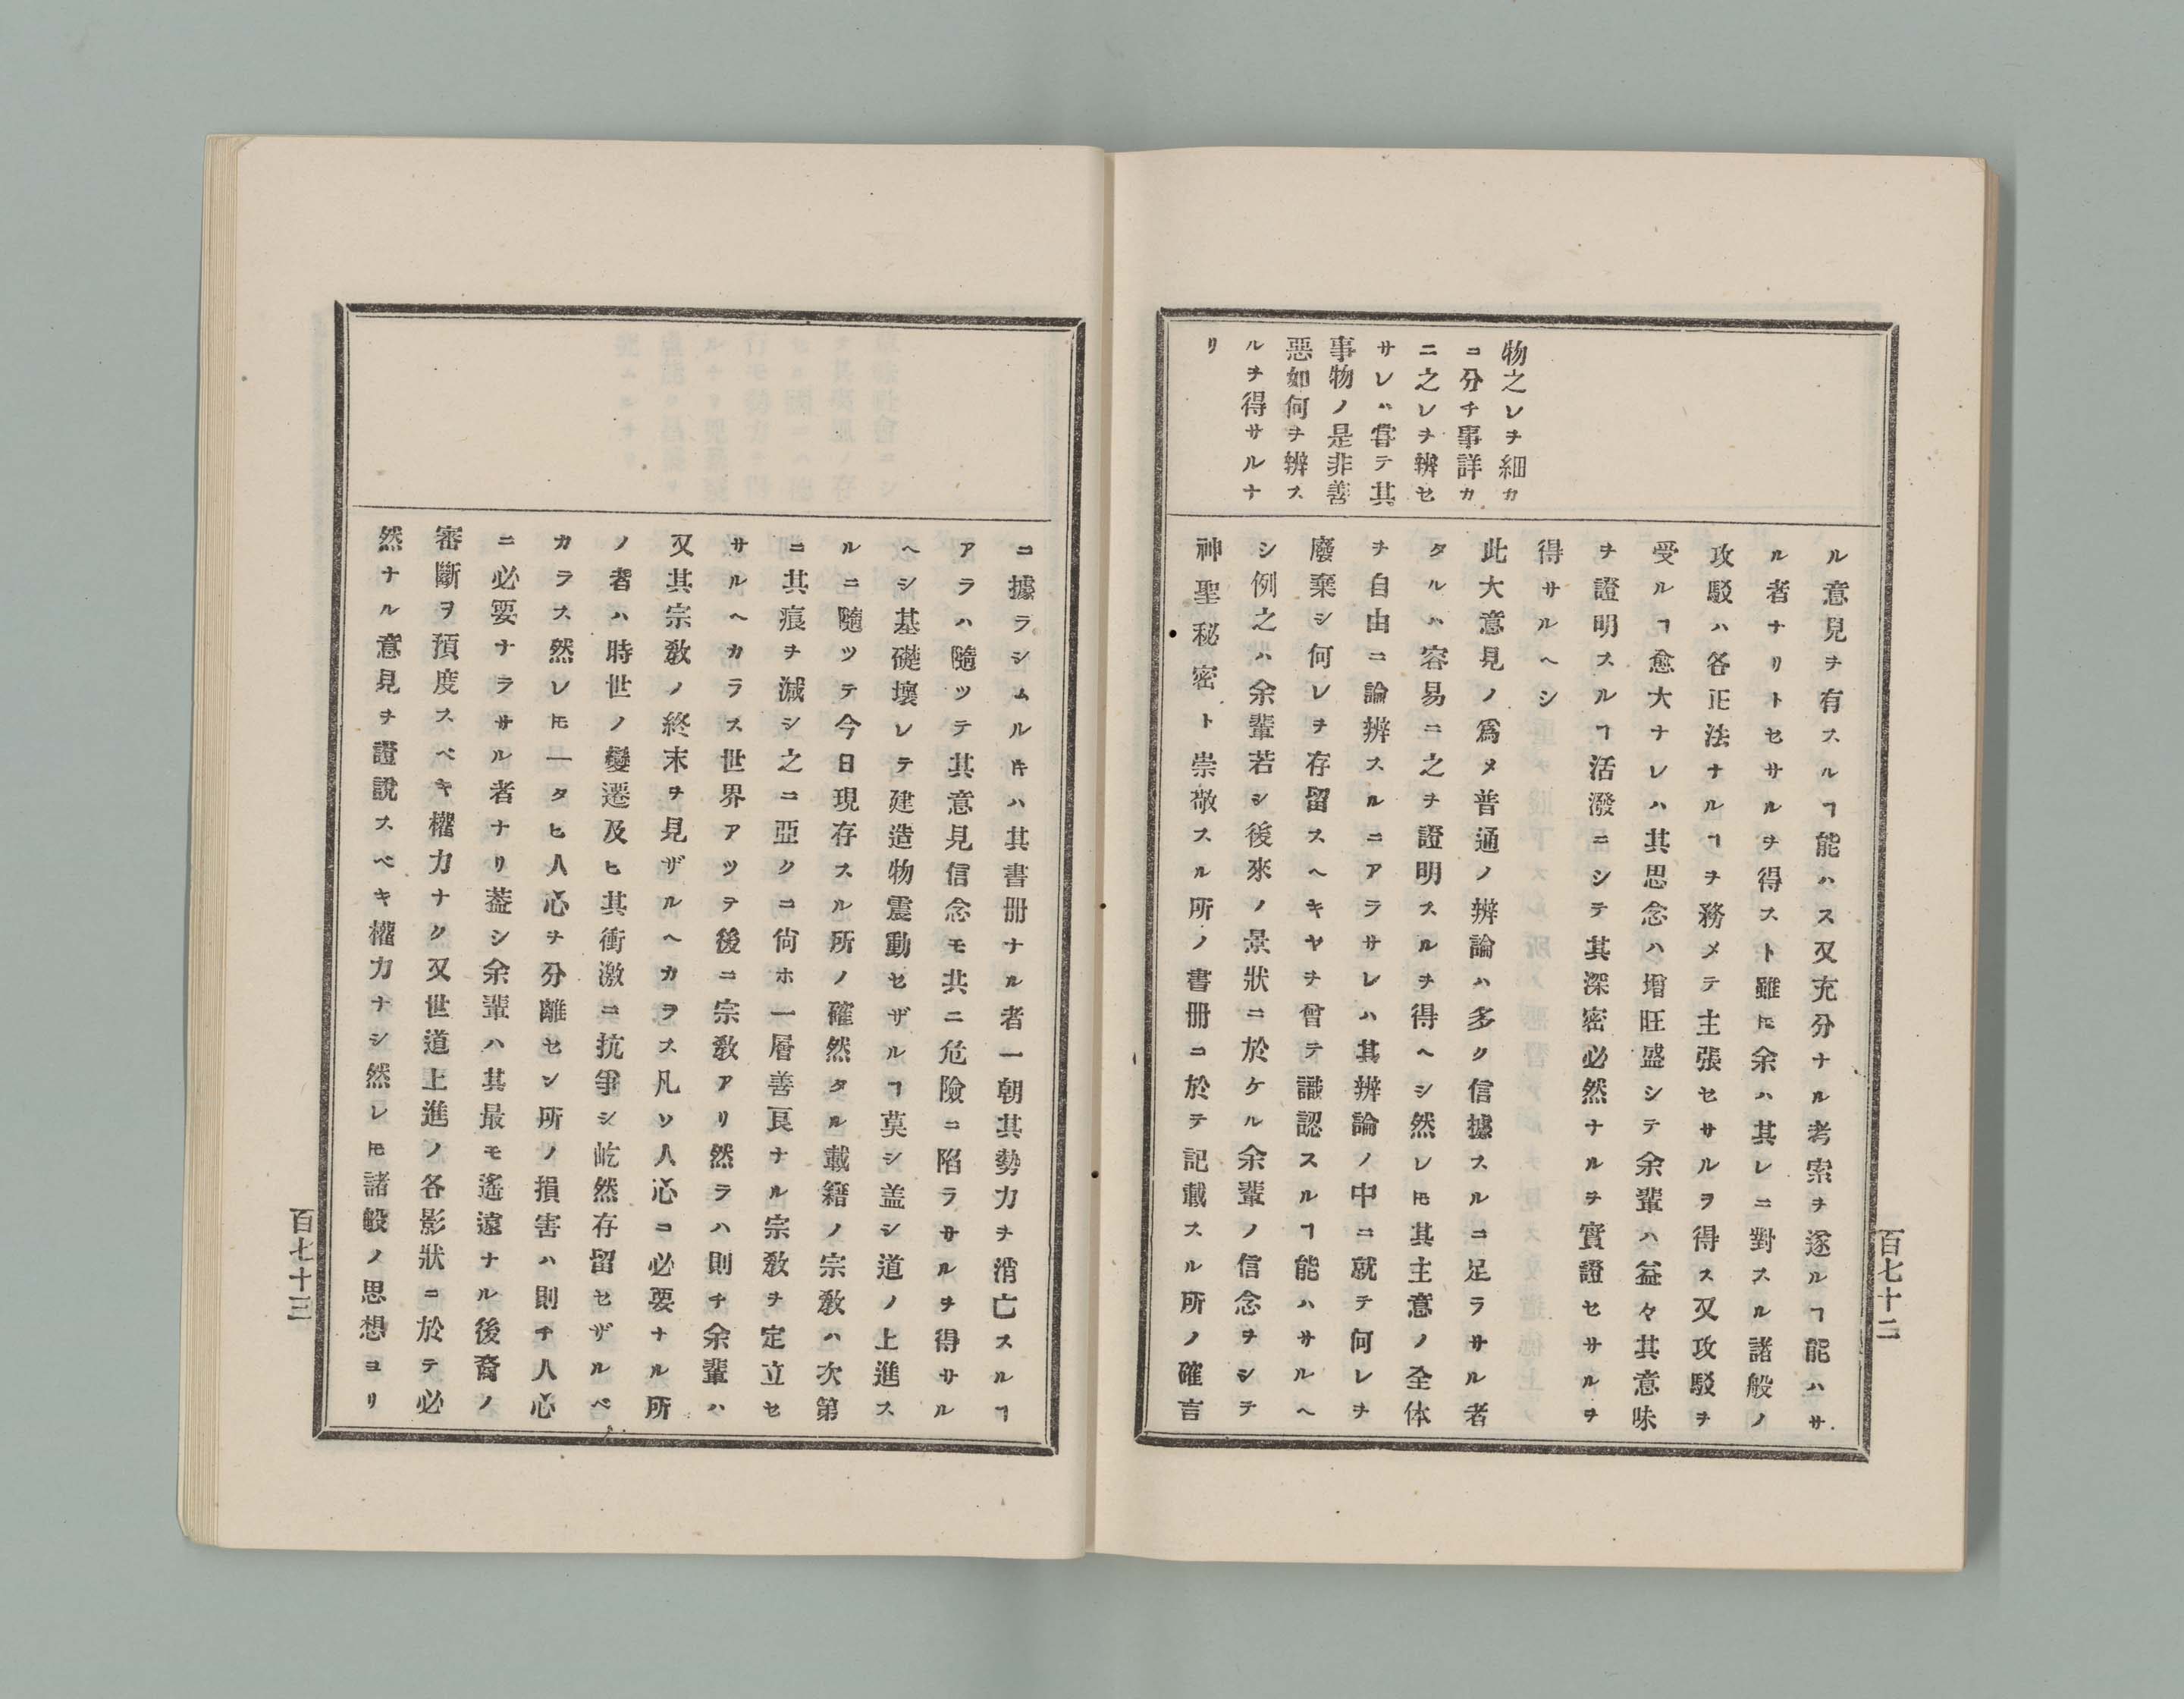 物之レヲ細カ
ニ分チ事詳カ
ニ之レヲ辨セ
サレハ嘗テ其
事物ノ是非善
惡如何ヲ辨ス
ルヲ得サルナ
リ
ル意見ヲ有スルヿ能ハス又充分ナル考索ヲ遂ルヿ能ハサ
ル者ナリトセサルヲ得スト雖𪜈余ハ其レニ對スル諸般ノ
攻駁ハ各正法ナルヿヲ務メテ主張セサルヲ得ス又攻駁ヲ
受ルヿ愈大ナレハ其思念ハ增旺盛シテ余輩ハ益々其意味
ヲ證明スルヿ活潑ニシテ其深密必然ナルヲ實證セサルヲ
得サルヘシ
此大意見ノ爲メ普通ノ辨論ハ多ク信據スルニ足ラサル者
タルハ容易ニ之ヲ證明スルヲ得ヘシ然レ𪜈其主意ノ全体
ヲ自由ニ論辨スルニアラサレハ其辨論ノ中ニ就テ何レヲ
廢棄シ何レヲ存留スヘキヤヲ曾テ識認スルヿ能ハサルヘ
シ例之ハ余輩若シ後來ノ景狀ニ於ケル余輩ノ信念ヲシテ
神聖秘密ト崇敬スル所ノ書册ニ於テ記載スル所ノ確言
百七十二
ニ據ラシムル𪜈ハ其書册ナル者一朝其勢力ヲ消亡スルヿ
アラハ隨ツテ其意見信念モ共ニ危險ニ陷ラサルヲ得サル
ヘシ基礎壞レテ建造物震動セザルヿ莫シ盖シ道ノ上進ス
ルニ隨ツテ今日現存スル所ノ確然タル載籍ノ宗敎ハ次第
ニ其痕ヲ減シ之ニ亞クニ尙ホ一層善良ナル宗敎ヲ定立セ
サルヘカラス世界アツテ後ニ宗敎アリ然ラハ則チ余輩ハ
又其宗敎ノ終末ヲ見ザルヘカラス凡ソ人心ニ必要ナル所
ノ者ハ時世ノ變遷及ヒ其衝激ニ抗爭シ屹然存留セザルベ
カラス然レ𪜈一タヒ人心ヲ分離セシ所ノ損害ハ則チ人心
ニ必要ナラサル者ナリ盖シ余輩ハ其最モ遙遠ナル後裔ノ
審斷ヲ預度スベキ權力ナク又世道上進ノ各影狀ニ於テ必
然ナル意見ヲ證說スベキ權力ナシ然レ𪜈諸般ノ思想ヨリ
百七十三